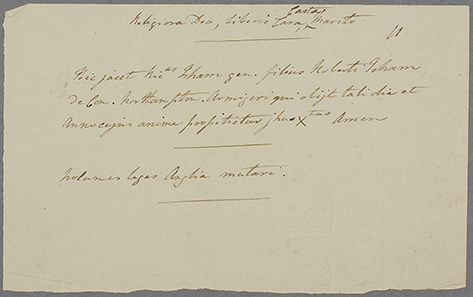 Religiosa Deo, Liberis Cara, Casta Marito
11
Hic jacet Ric.us Isham gen. filius Roberti Isham
de Com. Northampton Armigeri qui obijt tali die et
Anno cujus anime propitietur jhus Xtus Amen
nolumus leges Anglia mutari.